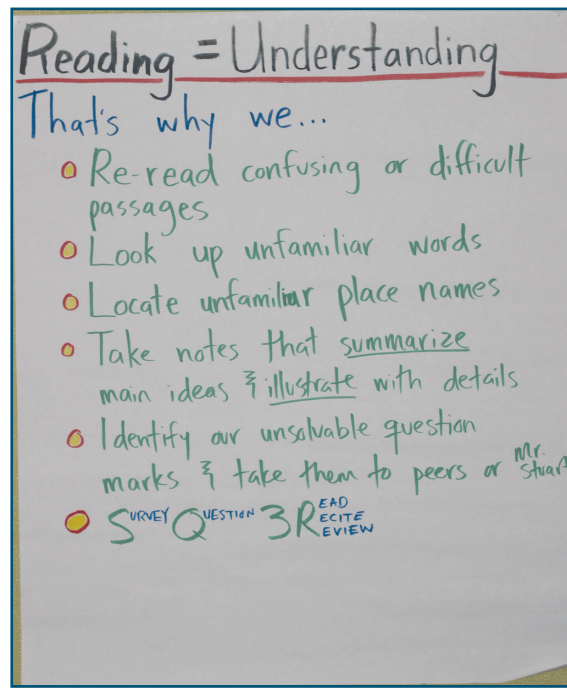 Reading = Understanding
That's why we...
Re-read confusing or difficult
passages
Look up unfamiliar words
Locate unfamiliar place names
Take notes that summarize
main ideas & illustrate with details
Identify our unsolvable question
marks & take them to peers or Mr.
Stuart
SURVEY QUESTION 3 READ
RECITE
REVIEW